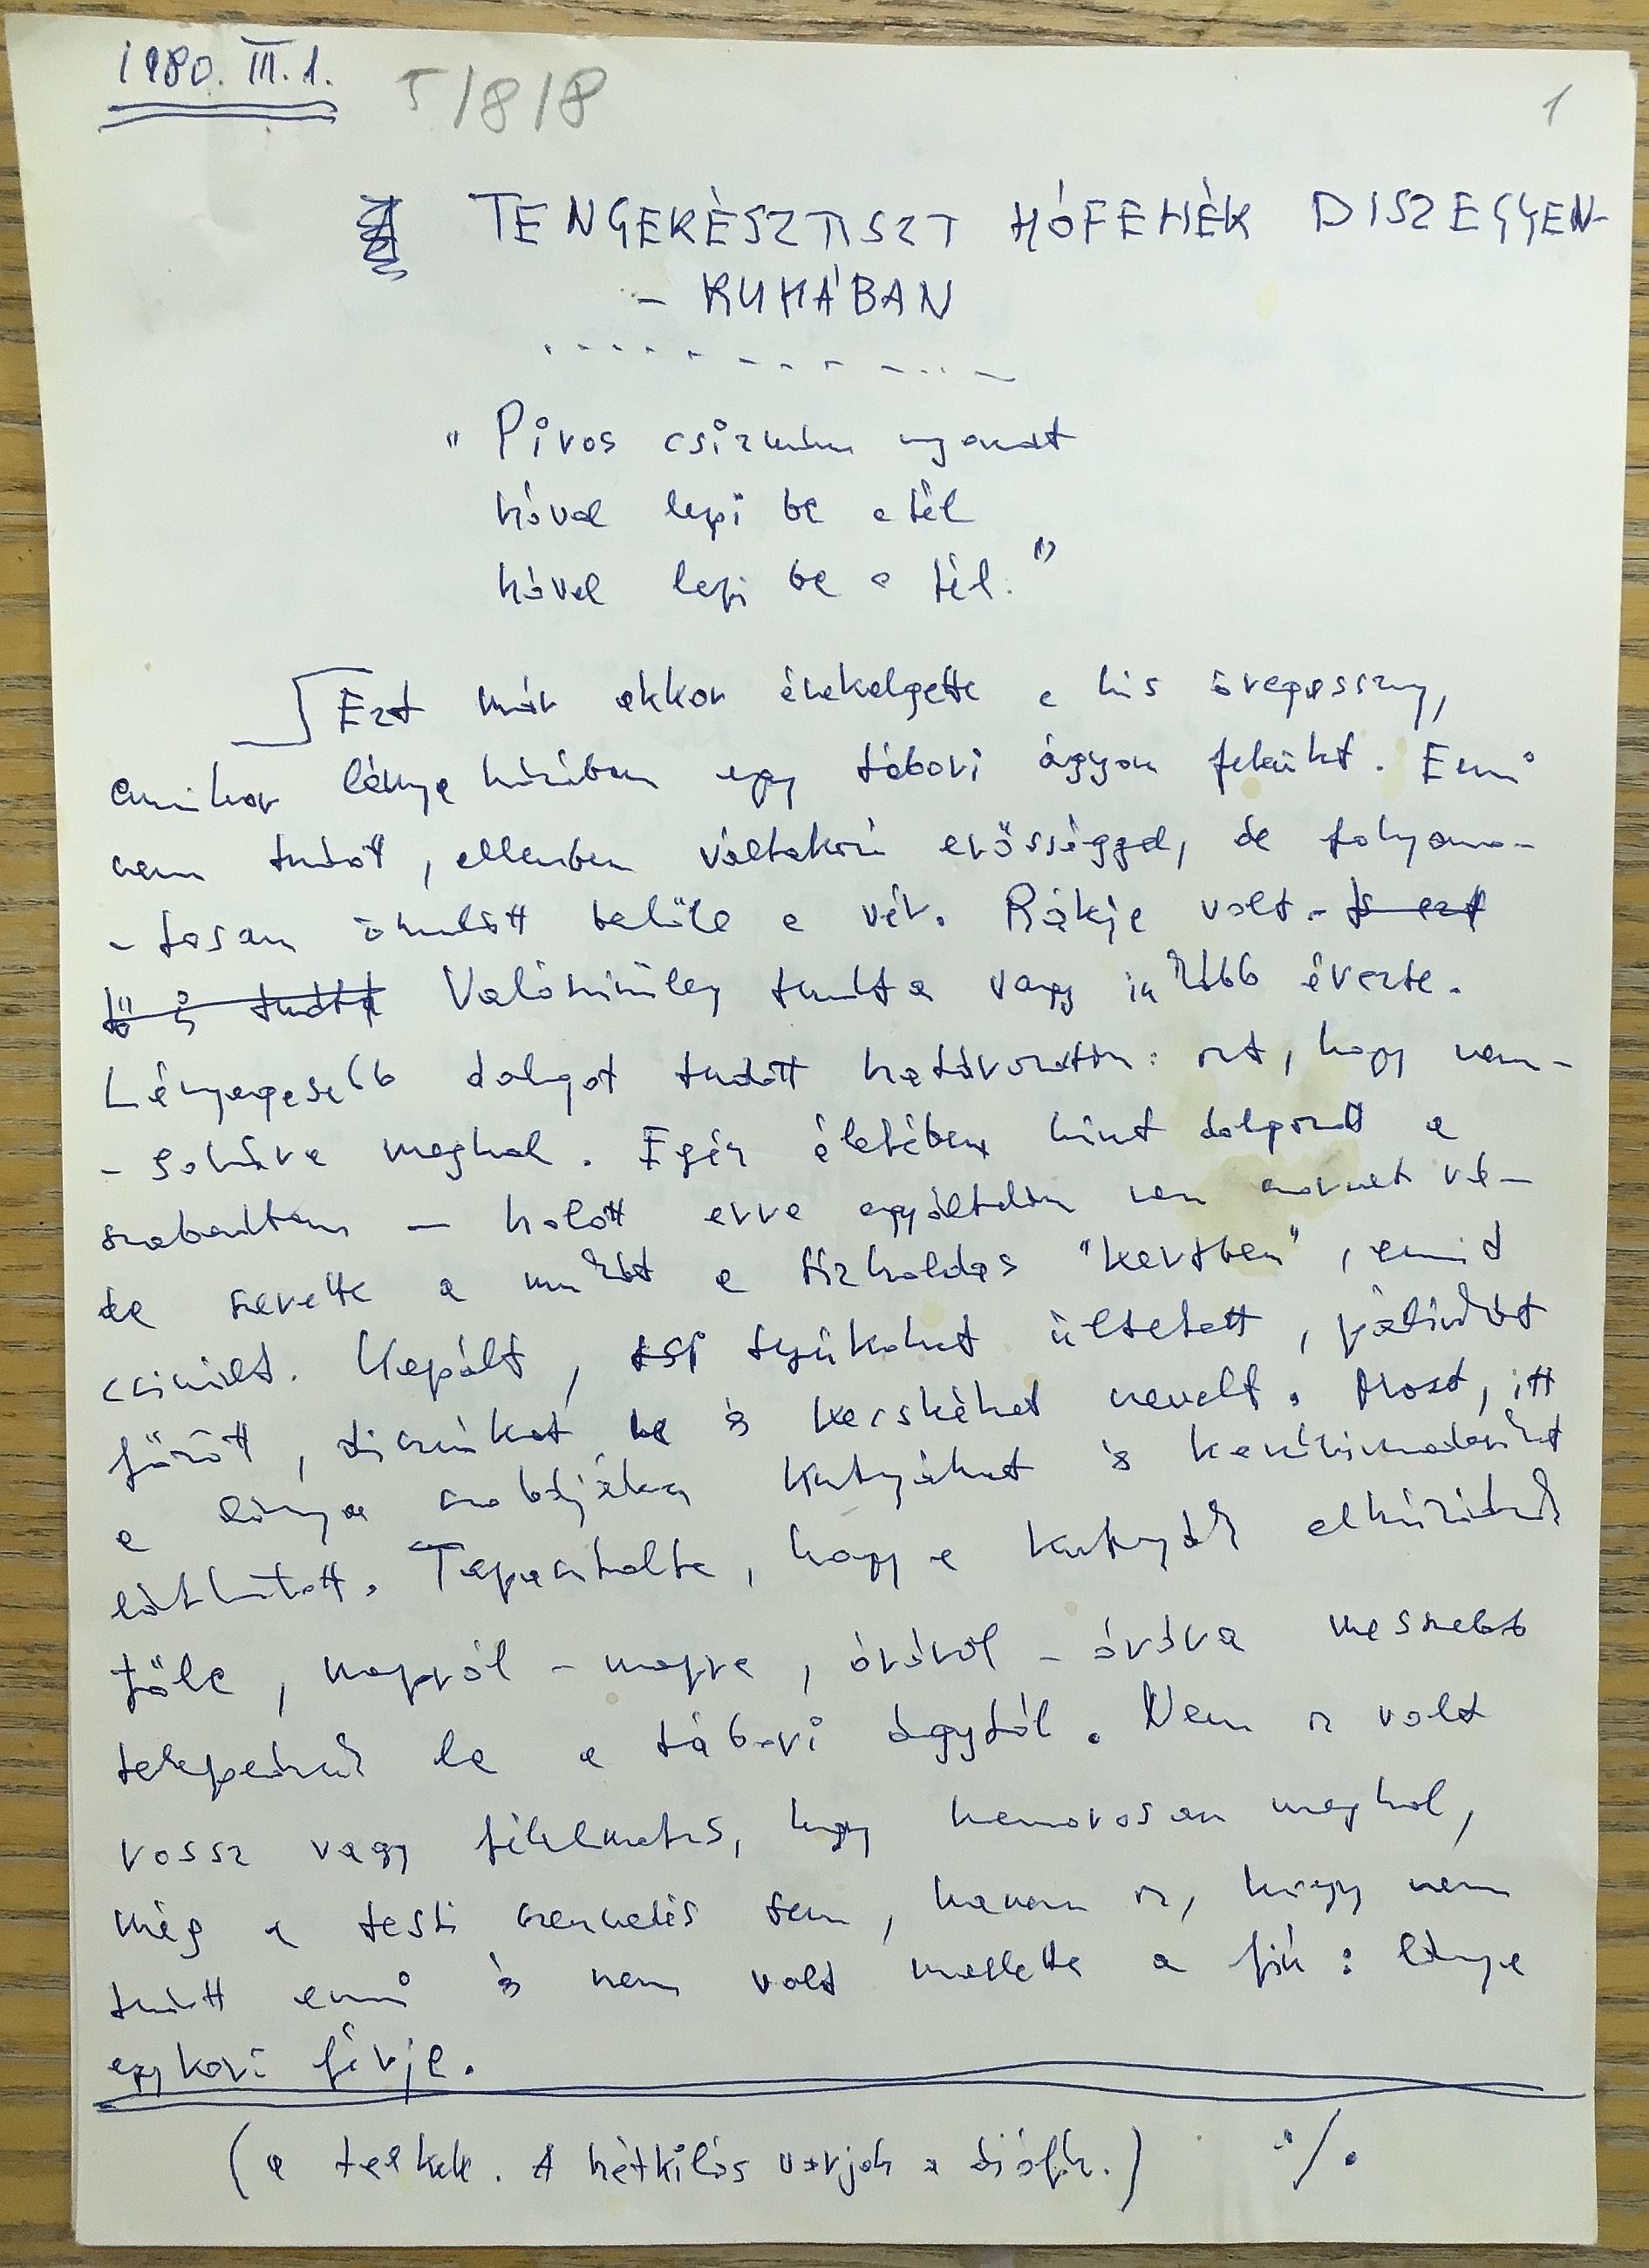 1980. III. 1. 5/8/8 1
TENGERÉSZTISZT HÓFEHÉR DISZEGYEN-
- RUHÁBAN
"Piros csizmám nyomát
hóval lepi be a tél
hóval lepi be a tél."
Ezt már akkor énekelgette a kis öregasszony,
amikor lánya házában egy tábori ágyon feküdt. Enni
nem tudott, ellenben váltakozó erősséggel, de folyama-
- tosan ömlött belőle a vér. Rákja volt. Is ezt
ő is tudta Valószinüleg tudta vagy inkább érezte.
Lényegesebb dolgot tudott határozottan: azt, hogy nem-
- sokára meghal. Egész életében kint dolgozott a
szabadban — holott erre egyáltalán nem
de szerette a munkát a tizholdas "kertben", amit
csinált. Kapált, tyúkokat ültetett, pálinkát
főzött, disznókat is kecskéket nevelt. Most, itt
a lánya szobájában kutyákat is kanárimadarakat
láthatott. Tapasztalta, hogy a kutyák elhúzódnak
tőle, napról - napra, óráról - órára messzebb
telepednek le a tábori ágytól. Nem az volt
rossz vagy félelmetes, hogy hamarosan meghal,
még a testi szenvedés sem, hanem az, hogy nem
tudott enni és nem volt mellette a fiú: lánya
egykori férje.
(a telkek. A hétkilós varjak a diófán.) ./.